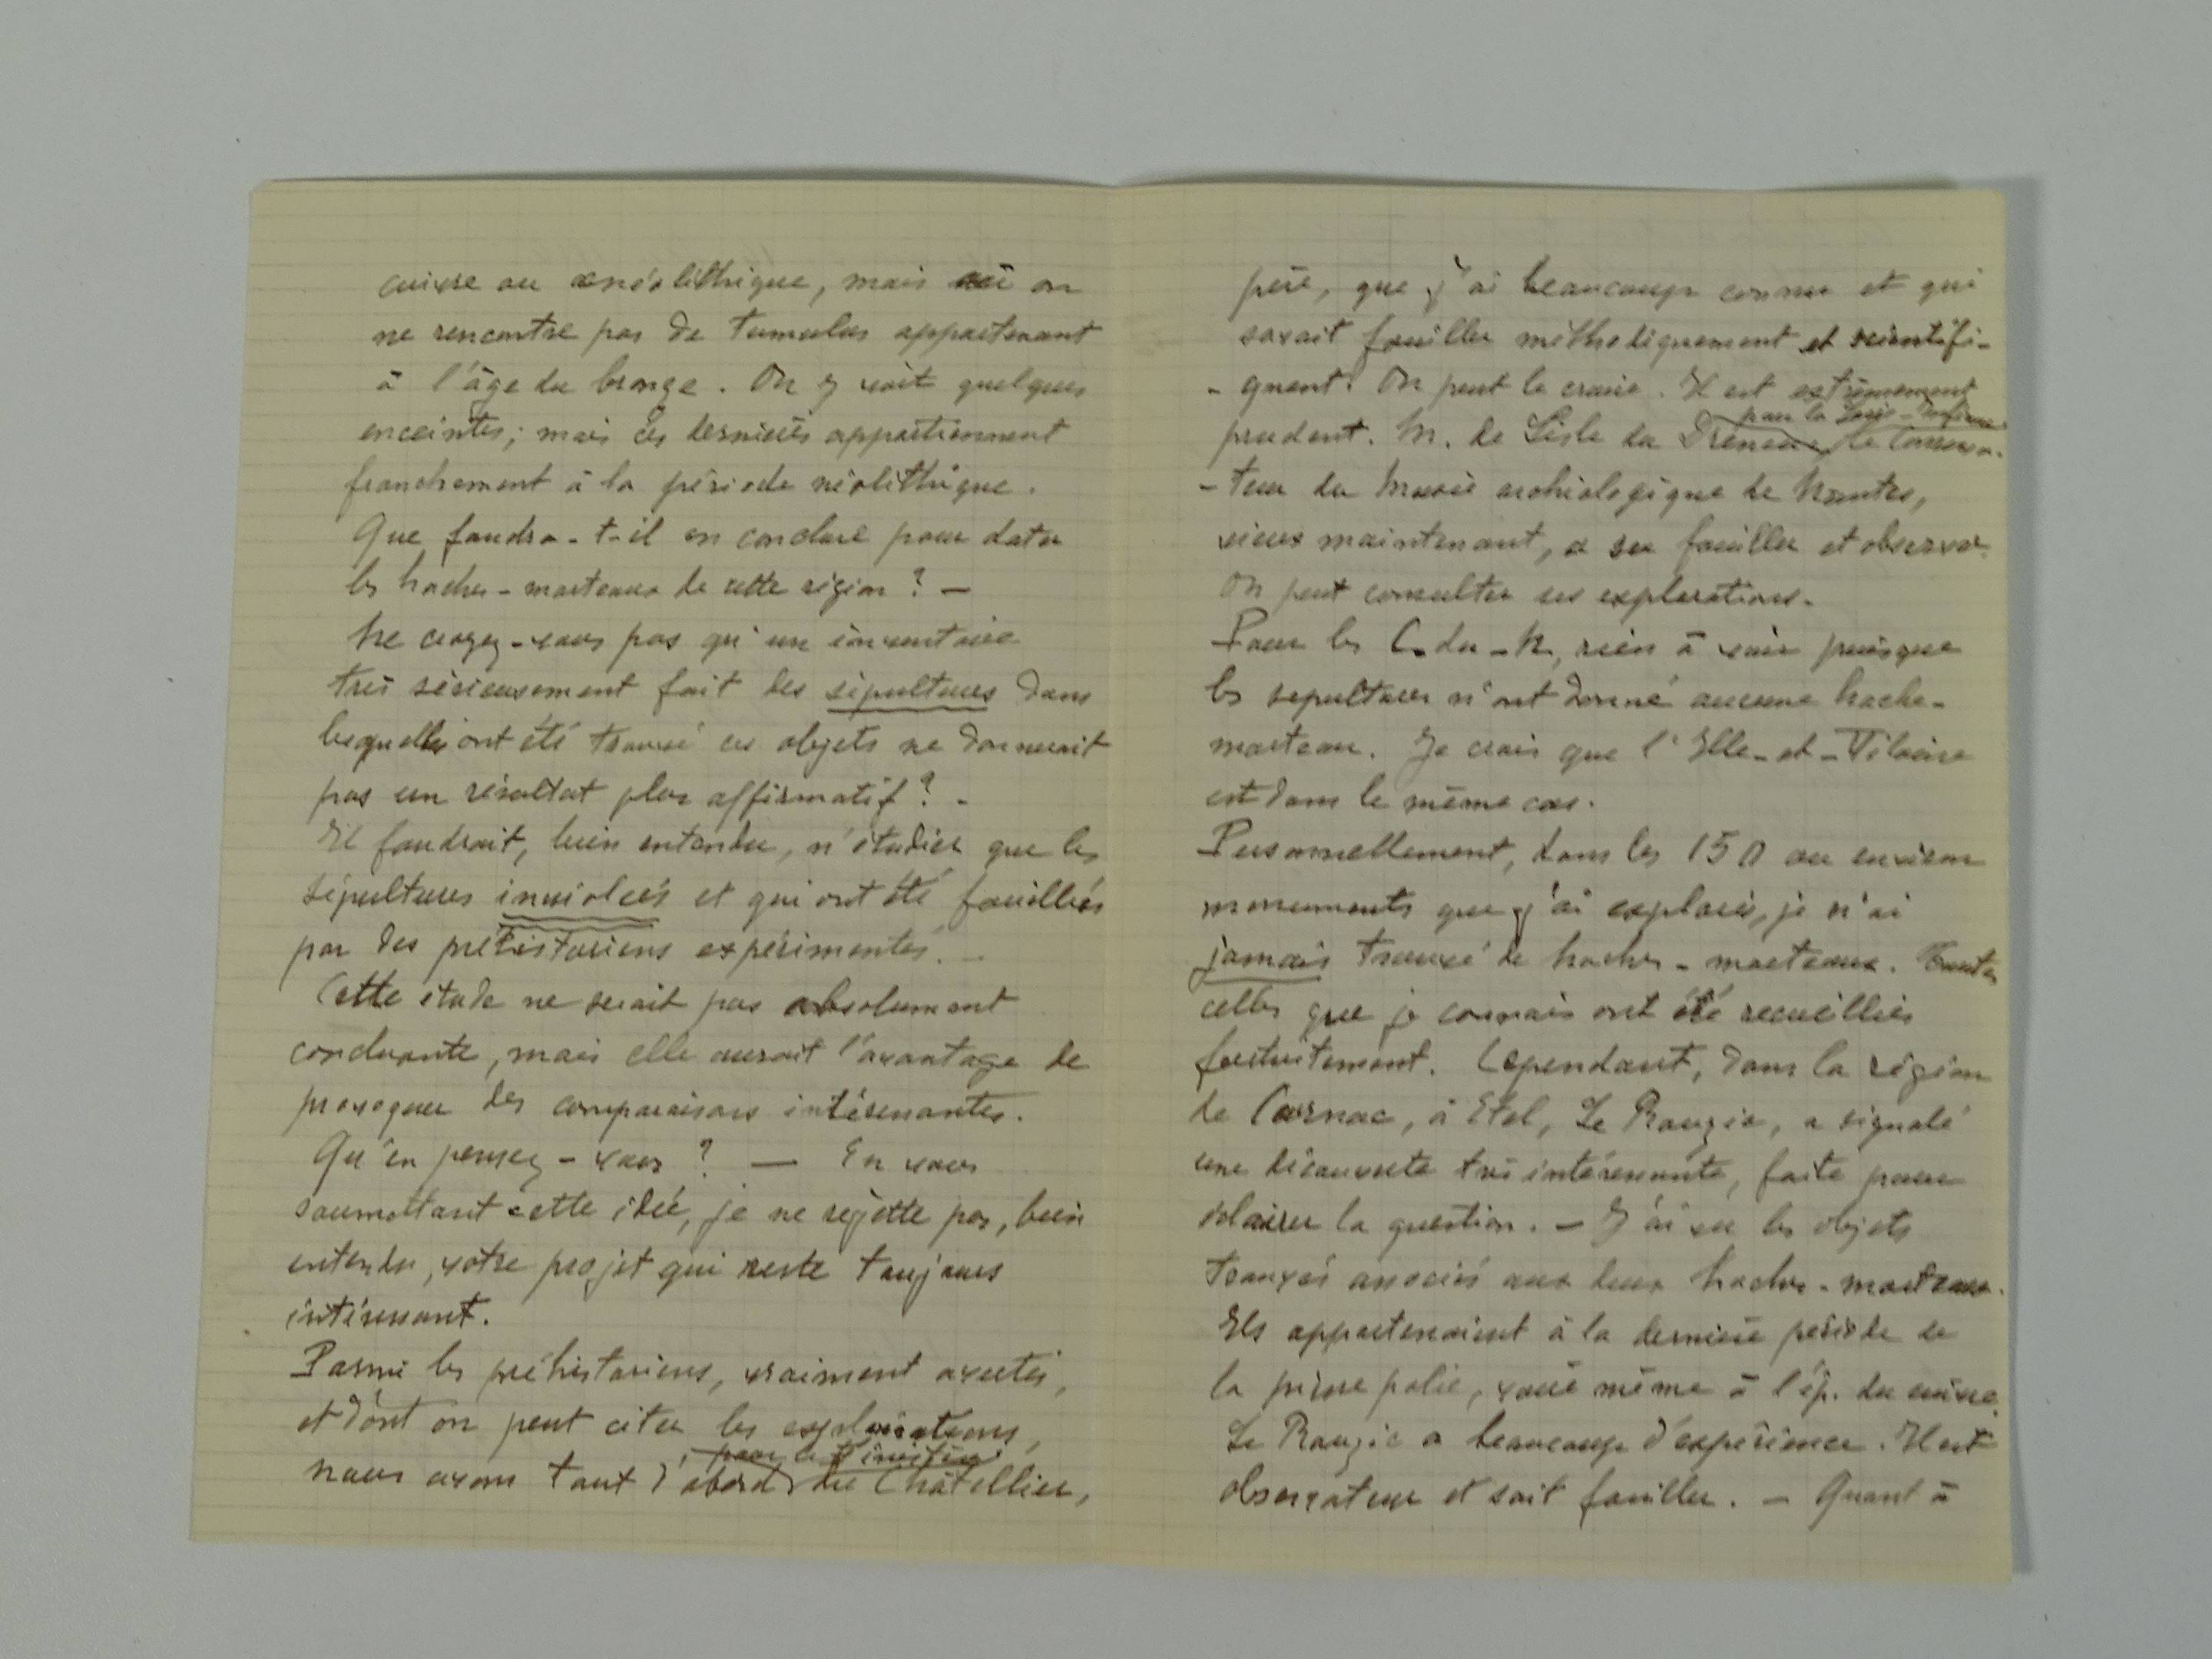 cuivre ou œnéolithique, mais où on
ne rencontre pas de tumulus appartenant
à l'âge du bronze. On y voit quelques
enceintes; mais ces dernières appartiennent
franchement à la période néolithique.
Que faudra-t-il en conclure pour dater
les haches-marteaux de cette région ? —
Ne croyez-vous pas qu'un inventaire
très sérieusement fait des sépultures dans
lesquelles ont été trouvé ces objets ne donnerait
pas un résultat plus affirmatif ? -
Il faudrait, bien entendu, n'étudier que les
sépultures inviolées et qui ont été fouillées
par des préhistoriens expérimentés. -
Cette étude ne serait pas absolument
concluante, mais elle aurait l'avantage de
provoquer des comparaisons intéressantes.
Qu'en pensez-vous ? — En vous
soumettant cette idée, je ne rejette pas, bien
entendu, votre projet qui reste toujours
intéressant.
Parmi les préhistoriens, vraiment avertis,
et dont on peut citer les explorations,
pour le Finistère
nous avons tout d'abord du Châtellier,
père, que j'ai beaucoup connu et qui
savait fouiller méthodiquement et scientifi-
-quement. On peut le croire. Il est extrêmement
pour la Loire-Inférieure
prudent. M. de Lisle du Dréneuc, le conserva-
-teur du Musée archéologique de Nantes,
vieux maintenant, a su fouiller et observer.
On peut consulter ses explorations.
Pour les C.-du-N., rien à voir puisque
les sépultures n'ont donné aucune hache-
marteau. Je crois que l'Ille-et-Vilaine
est dans le même cas.
Personnellement, dans les 150 ou environ
monuments que j'ai explorés, je n'ai
jamais trouvé de haches-marteaux. Toutes
celles que je connais ont été recueillies
fortuitement. Cependant, dans la région
de Carnac, à Etel, Le Rouzic, a signalé
une découverte très intéressante, faite pour
éclairer la question. — J'ai vu les objets
trouvés associés aux deux haches-marteaux.
Ils appartenaient à la dernière période de
la pierre polie, voire même à l'ép. du cuivre.
Le Rouzic a beaucoup d'expérience. Il est
observateur et sait fouiller. — Quant à